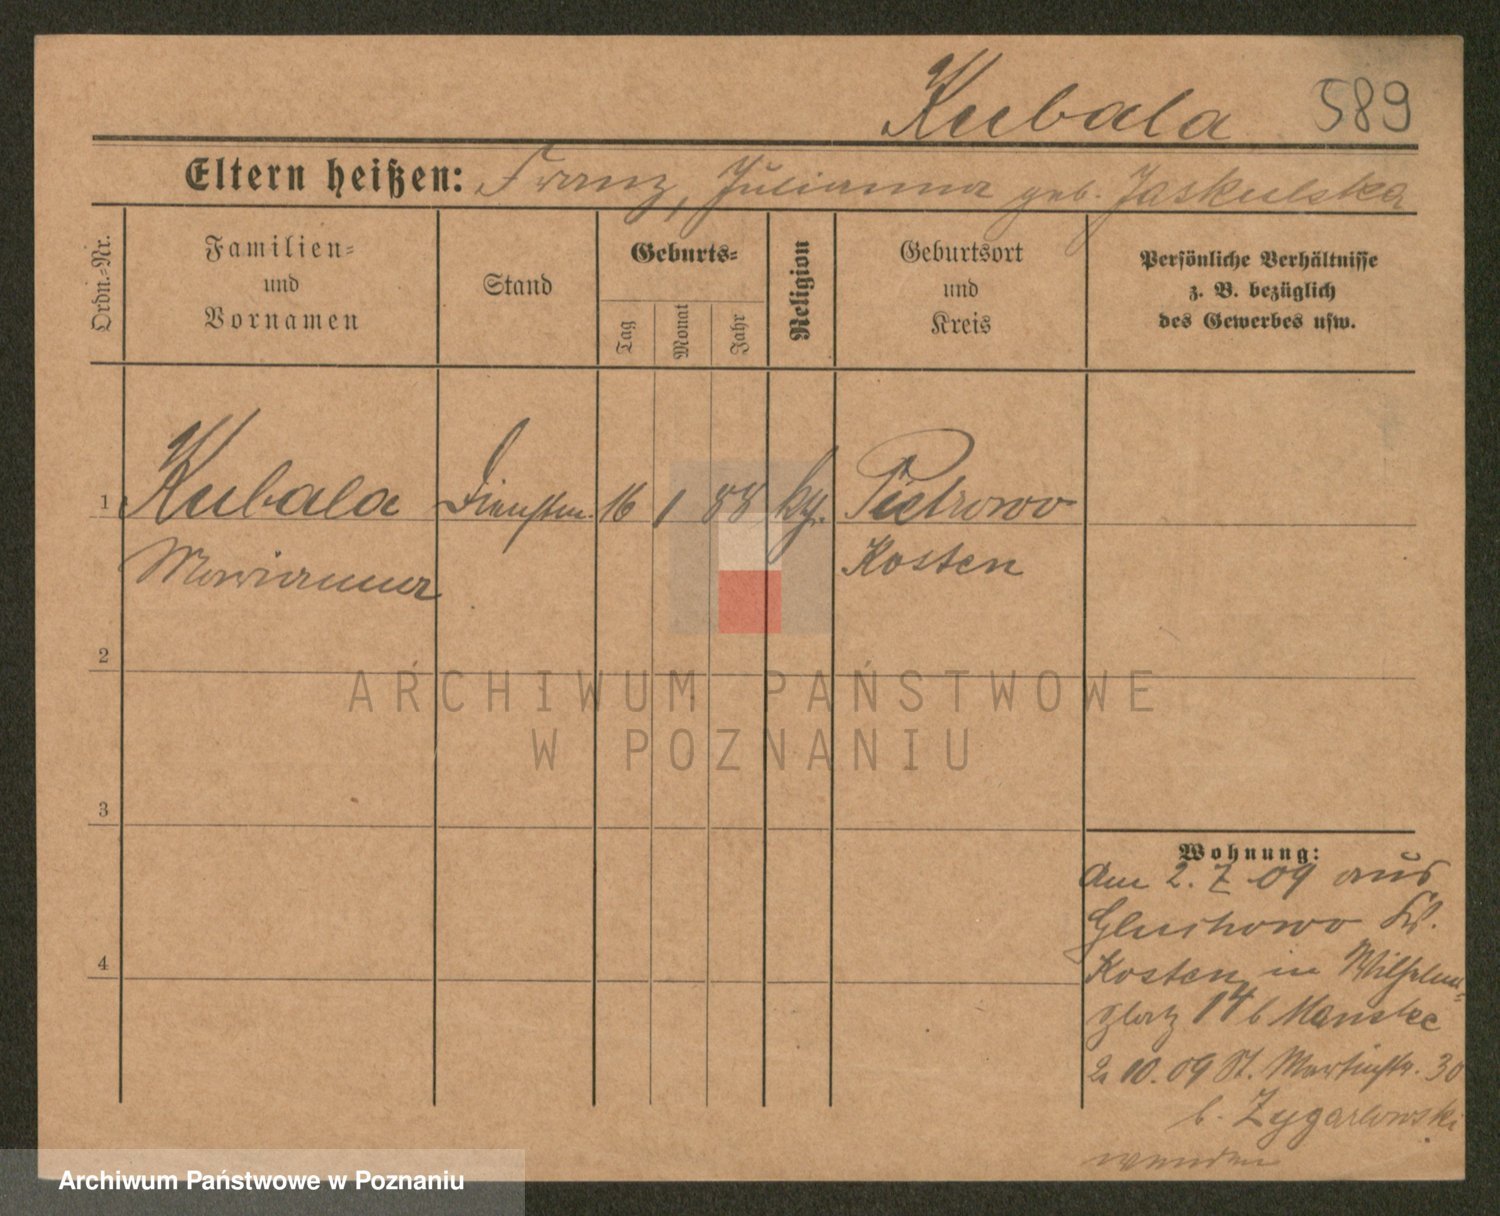 Kubala 589
Eltern heißen: Franz, Julianna geb. Jaskulska
Ordn.-Nr.
Familien-
und
Vornamen
Stand
Geburts-
Tag
Monat
Jahr
Religion
Geburtsort
und
Kreis
Persönliche Verhältnisse
z. B. bezüglich
des Gewerbes usw.
1 Kubala Dienstm. 16 1 88 kg. Pietrowo
Marianna Kosten
2
ARCHIWUM PAŃSTWOWE
W POZNANIU
3
Wohnung:
Am 2. 7 09 aus
Gluchowo Kr.
4
Kosten, in Wilhelm-
platz 14 b Manske
2. 10. 09 St. Martinstr. 30
b.
wenden
Archiwum Państwowe w Poznaniu